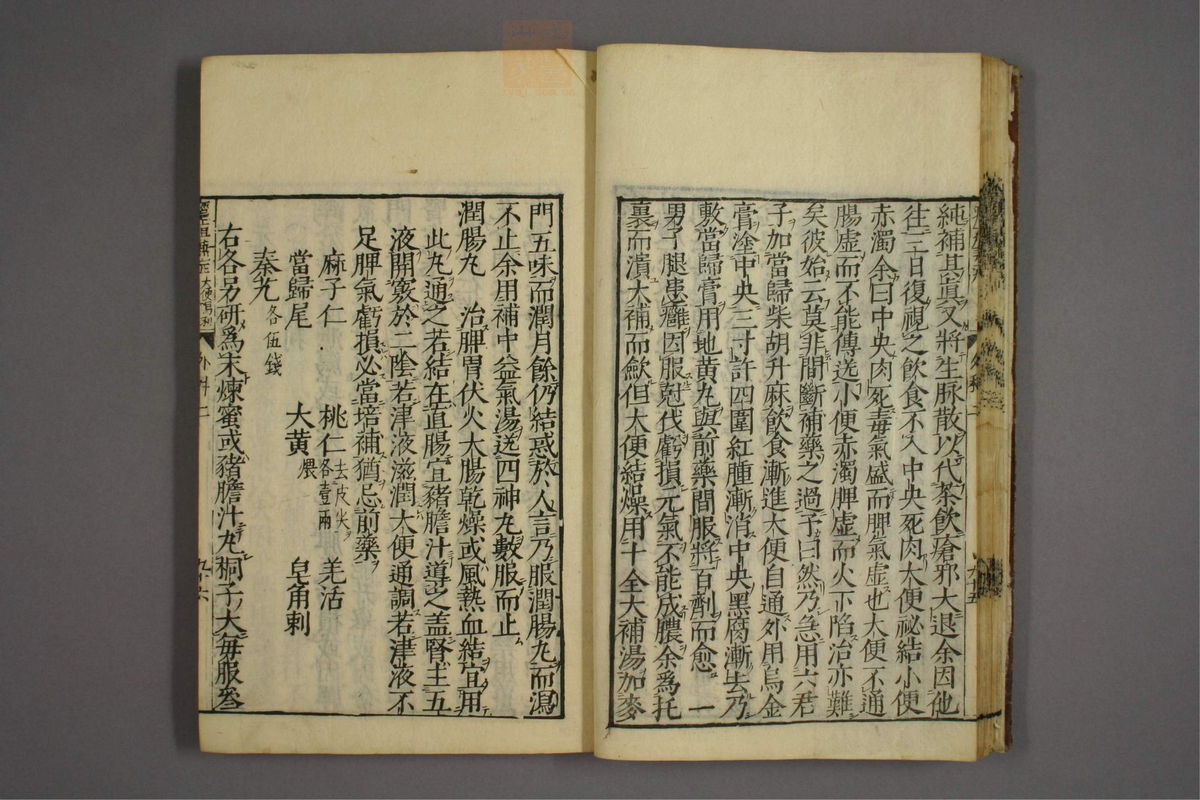 純補其眞又將生脉散以代茶飲瘡邪大退余因他
徃三日復視之飲食不入中央死肉大便祕結小便
赤濁余曰中央肉死毒氣盛而脾氣虛也大便不通
腸虛而不能傳送小便赤濁脾虛而火下陷治亦難
矣彼始云莫非間斷補藥之過予曰然乃急用六君
子加當歸柴胡升麻飲食漸進大便自通外用烏金
膏塗中央三寸許四圍紅腫漸消中央黑腐漸去乃
敷當歸膏用地黄丸與前藥間服將百劑而愈 一
男子腿患癰因服尅伐虧損元氣不能成膿余爲托
裏而潰大補而歛但大便結燥用十全大補湯加麥
門五味而潤月餘仍結惑於人言乃服潤腸丸而瀉
不止余用補中益氣湯送四神丸數服而止
潤腸丸 治脾胃伏火大腸乾燥或風熱血結宜用
此丸通之若結在直腸宜豬膽汁導之盖腎主五
液開竅於二陰若津液滋潤大便通調若津液不
足脾氣虧損必當培補猶忌前藥
麻子仁 桃仁去皮尖各壹兩 羌活
當歸尾 大黄煨 皂角刺
秦艽各伍錢
右各另研爲末煉蜜或豬膽汁丸桐子大毎服叄
外科二
九十六